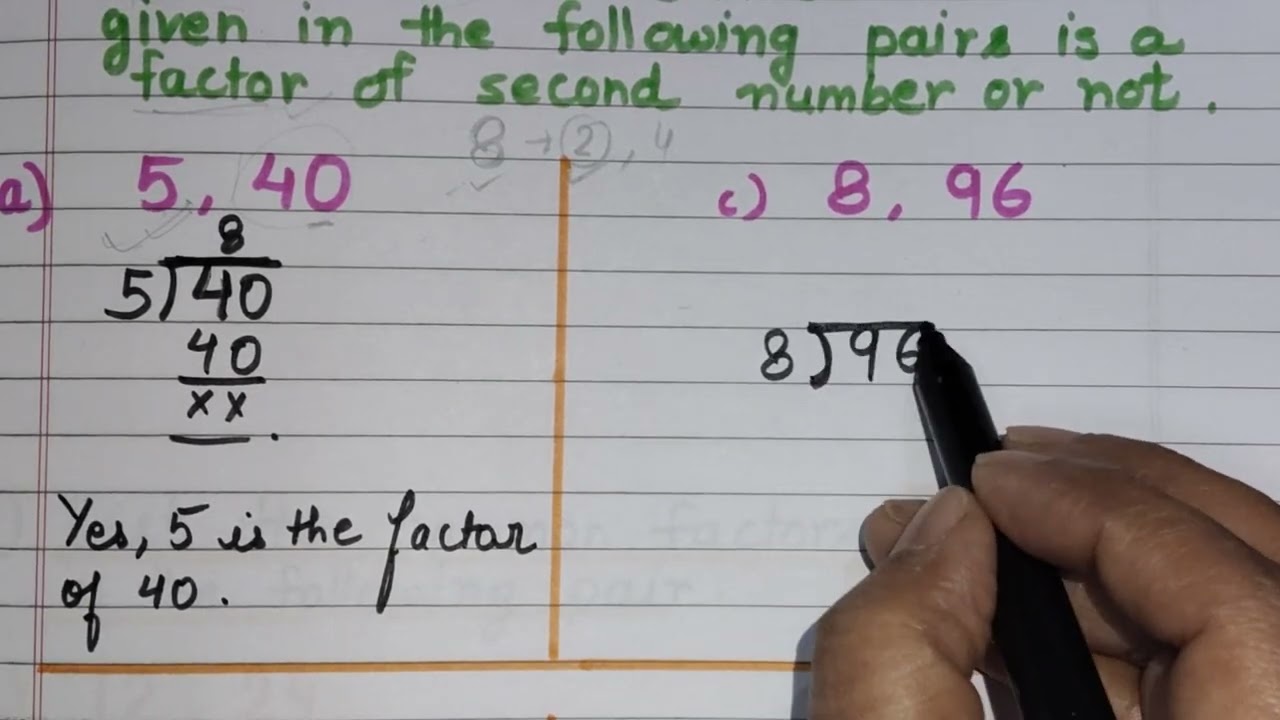 given in the following pairs is a
factor of second number or not.
8 → 2, 4
a) 5, 40
8
5)40
40
xx
Yes, 5 is the factor
of 40.
c) 8, 96
8)96